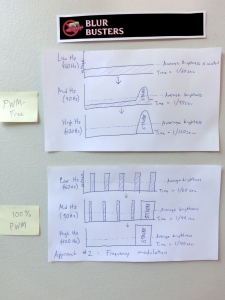 BLUR
BUSTERS
PWM-
Free
Low Hz
(60Hz)
Average Brightness
Time = 1/60 sec
Mid Hz
(90Hz)
Average Brightness
Time = 1/90 sec
High Hz
(120Hz)
Average Brightness
Time = 1/120 sec
100%
PWM
Low Hz
(60Hz)
Average Brightness
Time = 1/60 sec
Mid Hz
(90Hz)
STROBE
Average Brightness
Time = 1/90 sec
High Hz
(120Hz)
STROBE
Average Brightness
Time = 1/120 sec
Approach #2: Frequency modulation